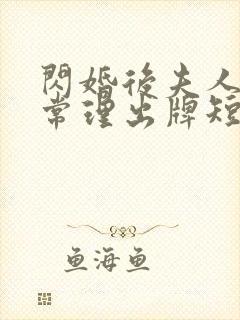 閃婚後夫人
常理出牌短
鱼海鱼